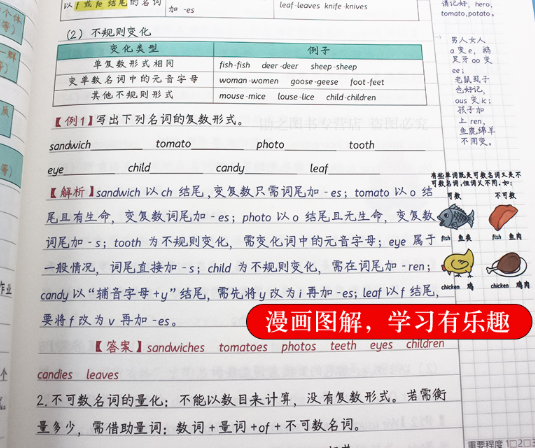 以f 或fe 结尾的名词
加 -es
leaf-leaves knife-knives
(2) 不规则变化
变化类型 例子
单复数形式相同 fish-fish deer-deer sheep-sheep
变单数名词中的元音字母 woman-women goose-geese foot-feet
其他不规则形式 mouse-mice louse-lice child-children
【例1】写出下列名词的复数形式。
sandwich tomato photo tooth
eye child candy leaf
【解析】sandwich 以 ch 结尾,变复数只需词尾加 -es; tomato 以 o 结
尾且有生命, 变复数词尾加 -es; photo 以 o 结尾且无生命, 变复数
词尾加 -s; tooth 为不规则变化, 需变化词中的元音字母; eye 属于
一般情况, 词尾直接加 -s; child 为不规则变化, 需在词尾加 -ren;
candy 以“辅音字母+y”结尾, 需先将 y 改为 i 再加 -es; leaf 以 f 结尾,
要将 f 改为 v 再加 -es。
【答案】sandwiches tomatoes photos teeth eyes children
candies leaves
2. 不可数名词的量化: 不能以数目来计算, 没有复数形式。若需衡
量多少, 需借助量词: 数词+量词+of+不可数名词。
请记好, hero,
tomato,potato。
男人女人
a 变 e, 鹅
足牙 oo 变
ee;
老鼠虱子
也好记,
ous 变 ic;
孩子加
上 ren,
鱼鹿绵羊
不用变。
有些单词既是可数名词又是不
可数名词,但词义不同,如:
可数 不可数
fish 鱼类 fish 鱼肉
chicken 鸡 chicken 鸡肉
漫画图解，学习有乐趣
重要程度 1□2□3